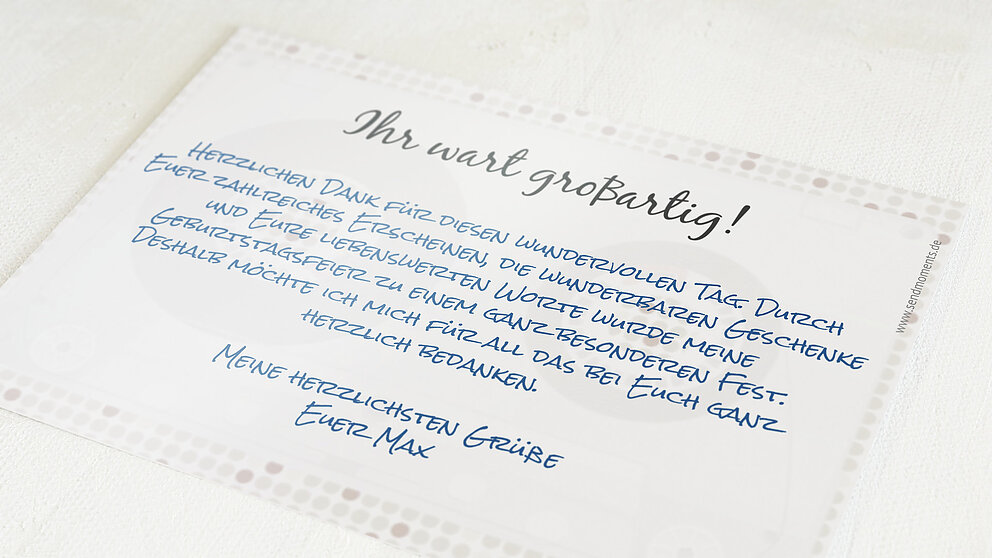 Ihr wart großartig!
Herzlichen Dank für diesen wundervollen Tag. Durch
Euer zahlreiches Erscheinen, die wunderbaren Geschenke
und Eure liebenswerten Worte wurde meine
Geburtstagsfeier zu einem ganz besonderen Fest.
Deshalb möchte ich mich für all das bei Euch ganz
herzlich bedanken.
Meine herzlichsten Grüße
Euer Max
www.sendmoments.de